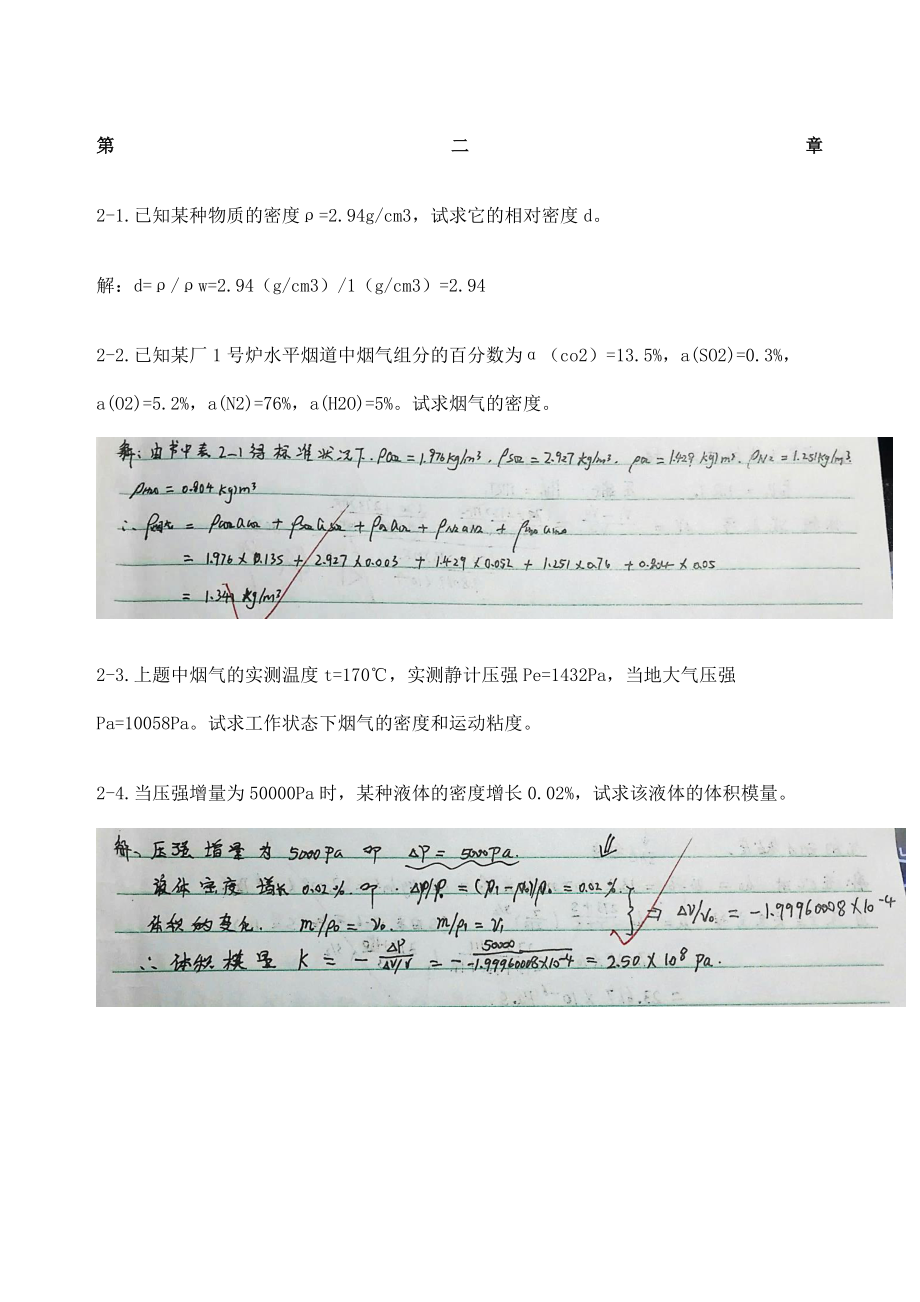 第二章
2-1.已知某种物质的密度ρ=2.94g/cm3，试求它的相对密度d。
解：d=ρ/ρw=2.94（g/cm3）/1（g/cm3）=2.94
2-2.已知某厂1号炉水平烟道中烟气组分的百分数为α（co2）=13.5%，a(SO2)=0.3%，
a(O2)=5.2%，a(N2)=76%，a(H2O)=5%。试求烟气的密度。
解：由书中表2-1得标准状况下.ρCO2=1.976kg/m³，ρSO2=2.927kg/m³，ρO2=1.429kg/m³，ρN2=1.251kg/m³
ρH2O=0.804kg/m³
∴ρ烟气=ρCO2aCO2+ρSO2aSO2+ρO2aO2+ρN2aN2+ρH2OaH2O
=1.976×0.135+2.927×0.003+1.429×0.052+1.251×0.76+0.804×0.05
=1.341kg/m³
2-3.上题中烟气的实测温度t=170℃，实测静计压强Pe=1432Pa，当地大气压强
Pa=10058Pa。试求工作状态下烟气的密度和运动粘度。
2-4.当压强增量为50000Pa时，某种液体的密度增长0.02%，试求该液体的体积模量。
解、压强增量为5000Pa即ΔP=5000Pa.
液体密度增长0.02%即.Δρ/ρ0=(ρ1-ρ0)/ρ0=0.02%.
体积的变化.m/ρ0=V0. m/ρ1=V1 ⇒ΔV/V0=-1.99960008×10⁻⁴
∴体积模量K=-ΔP/(ΔV/V)=-50000/(-1.99960008×10⁻⁴)=2.50×10⁸Pa.